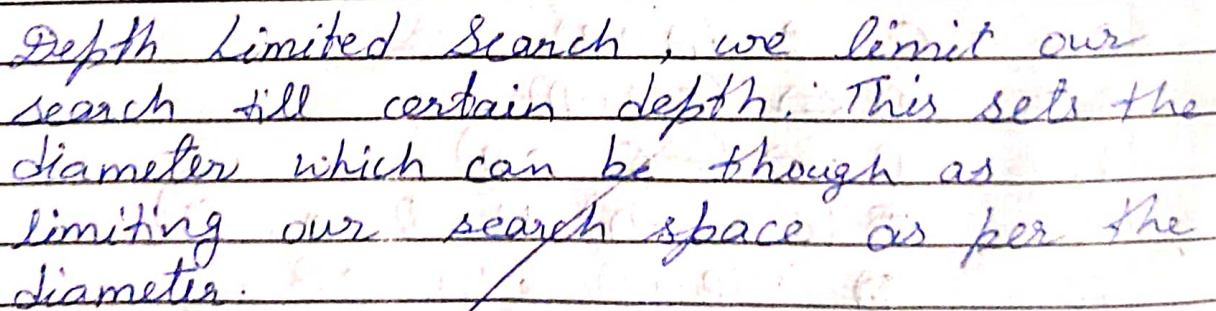 Depth Limited Search, we limit our
search till certain depth. This sets the
diameter which can be though as
limiting our search space as per the
diameter.